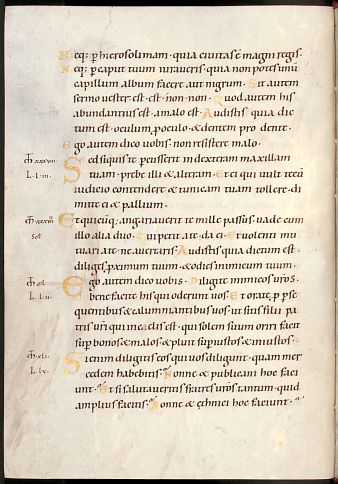 Neq; p hierosolimam · quia ciuitas ē magni regis ·
Neq; p caput tuum iuraueris · quia non potes unū
capillum album facere aut nigrum · Sit autem
sermo uester est · est · non · non · Quod autem his
abundantius est · a malo est · Audistis quia dic
tum est · oculum p oculo · & dentem pro dente ·
Ego autem dico uobis · non resistere malo ·
Sed si quis te percusserit in dexteram maxillam
tuam · prebe illi & alteram · Et ei qui uult tecū
iudicio contendere & tunicam tuam tollere · di
mitte ei & pallium ·
Et quicūq; angariauerit te mille passus · uade cum
illo alia duo · Qui petit a te · da ei · Et uolenti mu
tuari a te · ne auertaris · Audistis quia dictum est ·
diliges pximum tuum · & odies inimicum tuum ·
Ego autem dico uobis · Diligite inimicos uros ·
bene facite his qui oderunt uos · Et orate p pse
quentibus & calumniantibus uos · ut sitis filii pa
tris uri qui in celis est · qui solem suum oriri facit
sup bonos & malos · & pluit sup iustos & iniustos ·
Si enim diligitis eos qui uos diligunt · quam mer
cedem habebitis · Nonne & publicani hoc faci
unt · Et si salutaueritis fratres uros tantum · quid
amplius facitis · Nonne & ethnici hoc faciunt ·